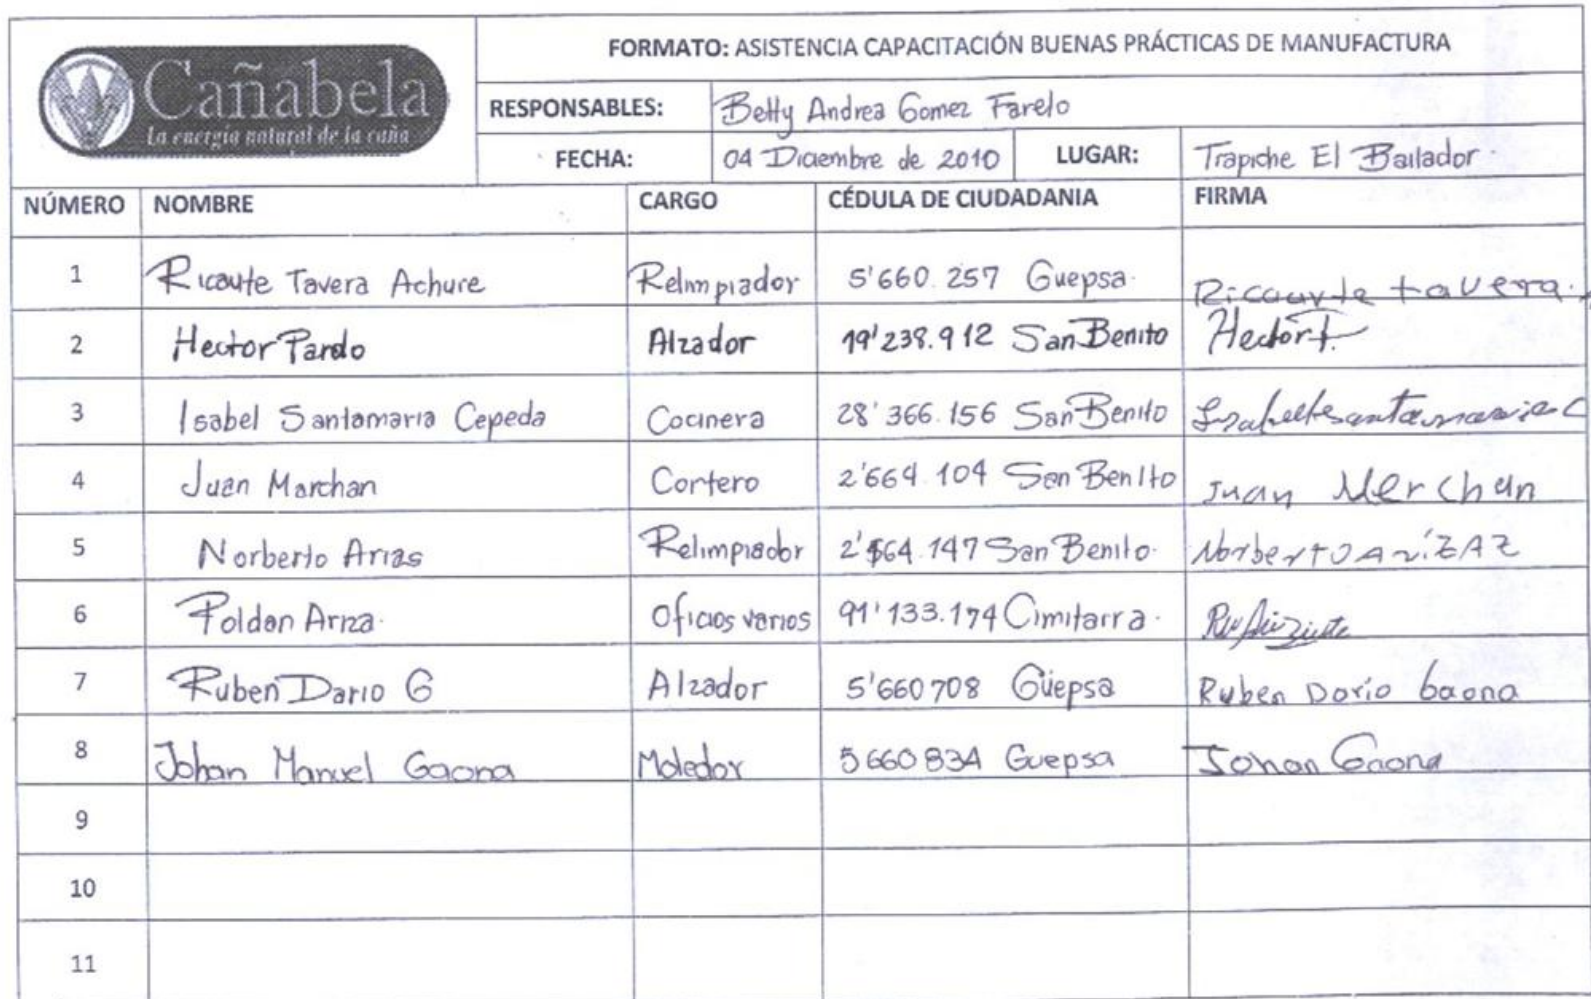 FORMATO: ASISTENCIA CAPACITACIÓN BUENAS PRÁCTICAS DE MANUFACTURA
Cañabela
La energía natural de la caña
RESPONSABLES: Betty Andrea Gomez Farelo
FECHA: 04 Diciembre de 2010 LUGAR: Trapiche El Bailador.
NÚMERO NOMBRE CARGO CÉDULA DE CIUDADANIA FIRMA
1 Ricaute Tavera Achure Relimpiador 5'660.257 Guepsa. Ricaurte tavera.
2 Hector Pardo Alzador 19'238.912 San Benito Hector
3 Isabel Santamaria Cepeda Cocinera 28'366.156 San Benito Isabel santamaria C
4 Juan Marchan Cortero 2'664.104 San Benito Juan Merchan
5 Norberto Arias Relimpiador 2'664.147 San Benito. Norberto
6 Poldan Ariza. Oficios varios 91'133.174 Cimitarra.
7 Ruben Dario G Alzador 5'660708 Güepsa Ruben Dario Gaona
8 Johan Manuel Gaona Moledor 5660834 Guepsa Johan Gaona
9
10
11